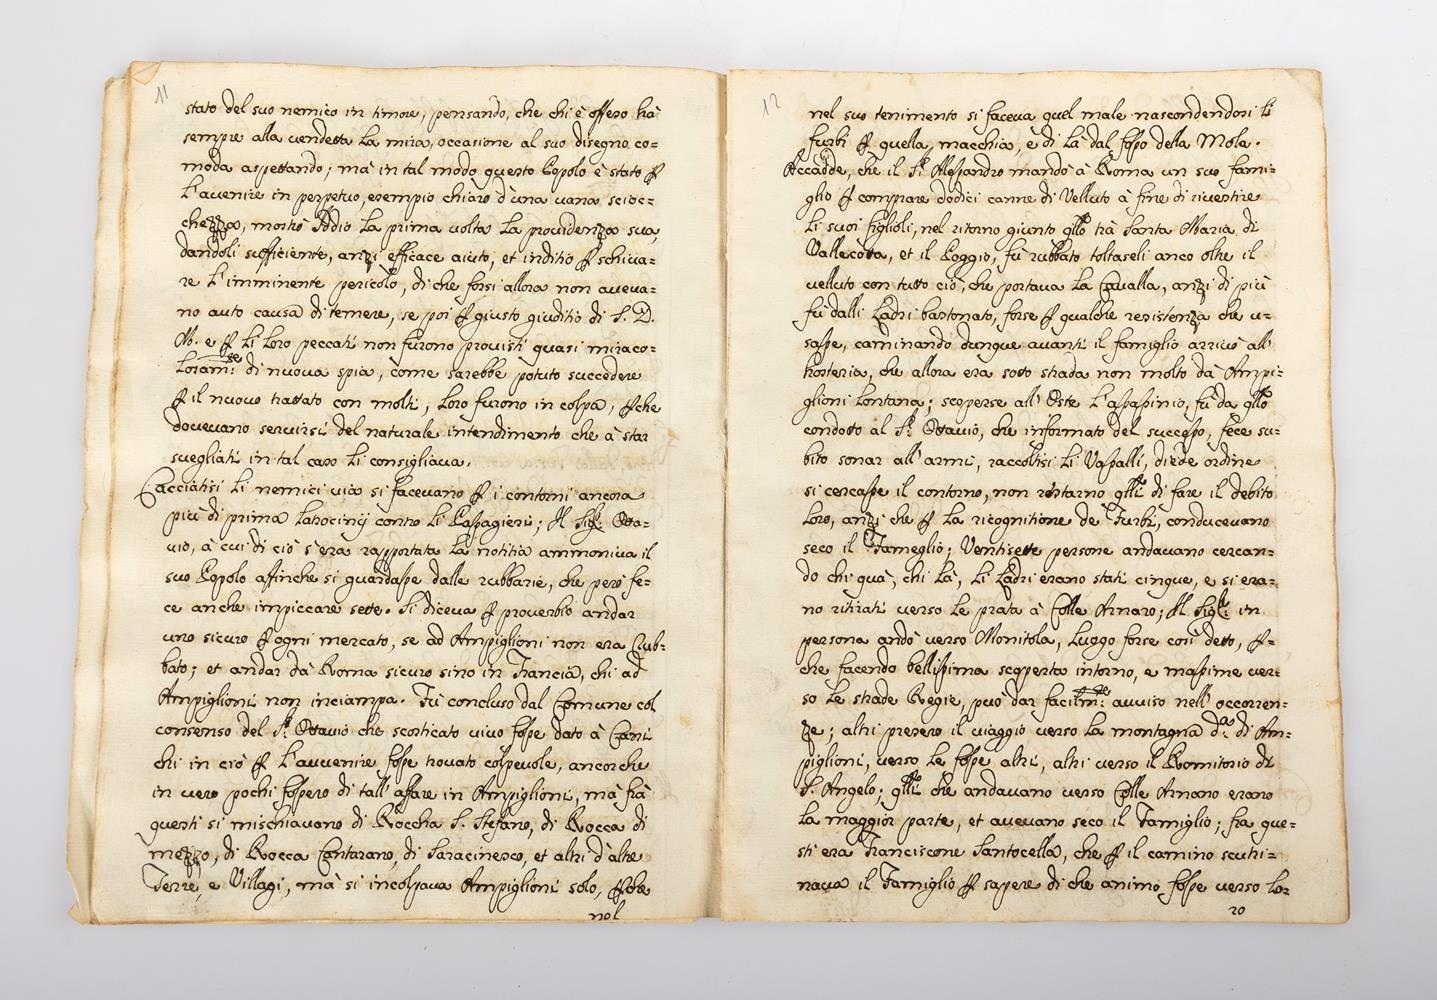 11
stato del suo nemico in timore, pensando, che chi è offeso hà
sempre alla vendetta la mira, occasione al suo disegno co=
moda aspettando; mà in tal modo questo Popolo è stato p
l'avenire in perpetuo, esempio chiaro d'una vana scioc=
chezza, mostrò Iddio la prima volta la providenza sua,
dandoli sufficiente, anzi efficace aiuto, et inditio p schiva=
re l'imminente pericolo, di che forsi allora non aveva=
no auto causa di temere, se poi p giusto giuditio di S. D.
M. e p li loro peccati non furono provisti quasi miraco=
losam:te di nuova spia, come sarebbe potuto succedere
p il nuovo trattato con molti, loro furono in colpa, pche
dovevano servirsi del naturale intendimento che à star
svegliati in tal caso li consigliava.
Cacciatisi li nemici via si facevano p i contorni ancora
più di prima latrocinij contro li Passagieri; Il Sig:r Otta=
vio, à cui di ciò s'era rapportata la notitia ammoniva il
suo Popolo affinche si guardasse dalle rubbarie, che però fe=
ce anche impiccare sette. Si diceva p proverbio andar
uno sicuro p ogni mercato, se ad Ampiglioni non era rub=
bato; et andar dà Roma sicuro sino in Francia, chi ad
Ampiglioni non inciampa. Fù concluso dal Comune col
consenso del S:r Ottavio che scorticato vivo fosse dato à Cani
chi in ciò p l'avvenire fosse trovato colpevole, ancorche
in vero pochi fossero di tall'affare in Ampiglioni, mà frà
questi si mischiavano di Roccha S. Stefano, di Rocca di
mezzo, di Rocca Cantarano, di Saracinesco, et altri d'altre
Terre, e Villagi, mà si incolpava Ampiglioni solo, pche
nel
12
nel suo tenimento si faceva quel male nascondendosi li
furbi p quella macchia, e di là dal fosso della Mola.
Accadde, che il S:r Alessandro mandò à Roma un suo fami=
glio p comprare dodici canne di Velluto à fine di rivestire
li suoi figlioli, nel ritorno giunto qllo trà Santa Maria di
Vallecotta, et il Poggio, fù rubbato toltaseli anco oltre il
velluto con tutto ciò, che portava la Cavalla, anzi di più
fù dalli Ladri bastonato, forse p qualche resistenza che u=
sasse, caminando dunque avanti il famiglio arrivò all'
hosteria, che allora era sotto strada non molto dà Ampi=
glioni lontana; scoperse all'Oste l'assassinio, fù da qllo
condotto al S:r Ottavio, che informato del successo, fece su=
bito sonar all'armi, raccoltisi li Vassalli, diede ordine
si cercasse il contorno, non restarno qlli di fare il debito
loro, anzi che p la ricognitione de' Furbi, conducevano
seco il Fameglio; Ventisette persone andavano cercan=
do chi quà, chi là, li Ladri erano stati cinque, e si era=
no ritirati verso le prata à Colle Arnaro; Il Sig:r in
persona andò verso Monitola, luogo forse così detto, p=
che facendo bellissima scoperta intorno, e massime ver=
so le strade Regie, può dar facilm:te avviso nell'occorren=
ze; altri presero il viaggio verso la montagna d:a di Am=
piglioni, verso le fosse altri, altri verso il Romitorio di
S. Angelo; qlli che andavano verso Colle Arnaro erano
la maggior parte, et avevano seco il Famiglio; fra que=
sti era Franciscone Santocella, che p il camino scruti=
nava il Famiglio p sapere di che animo fosse verso lo=
ro